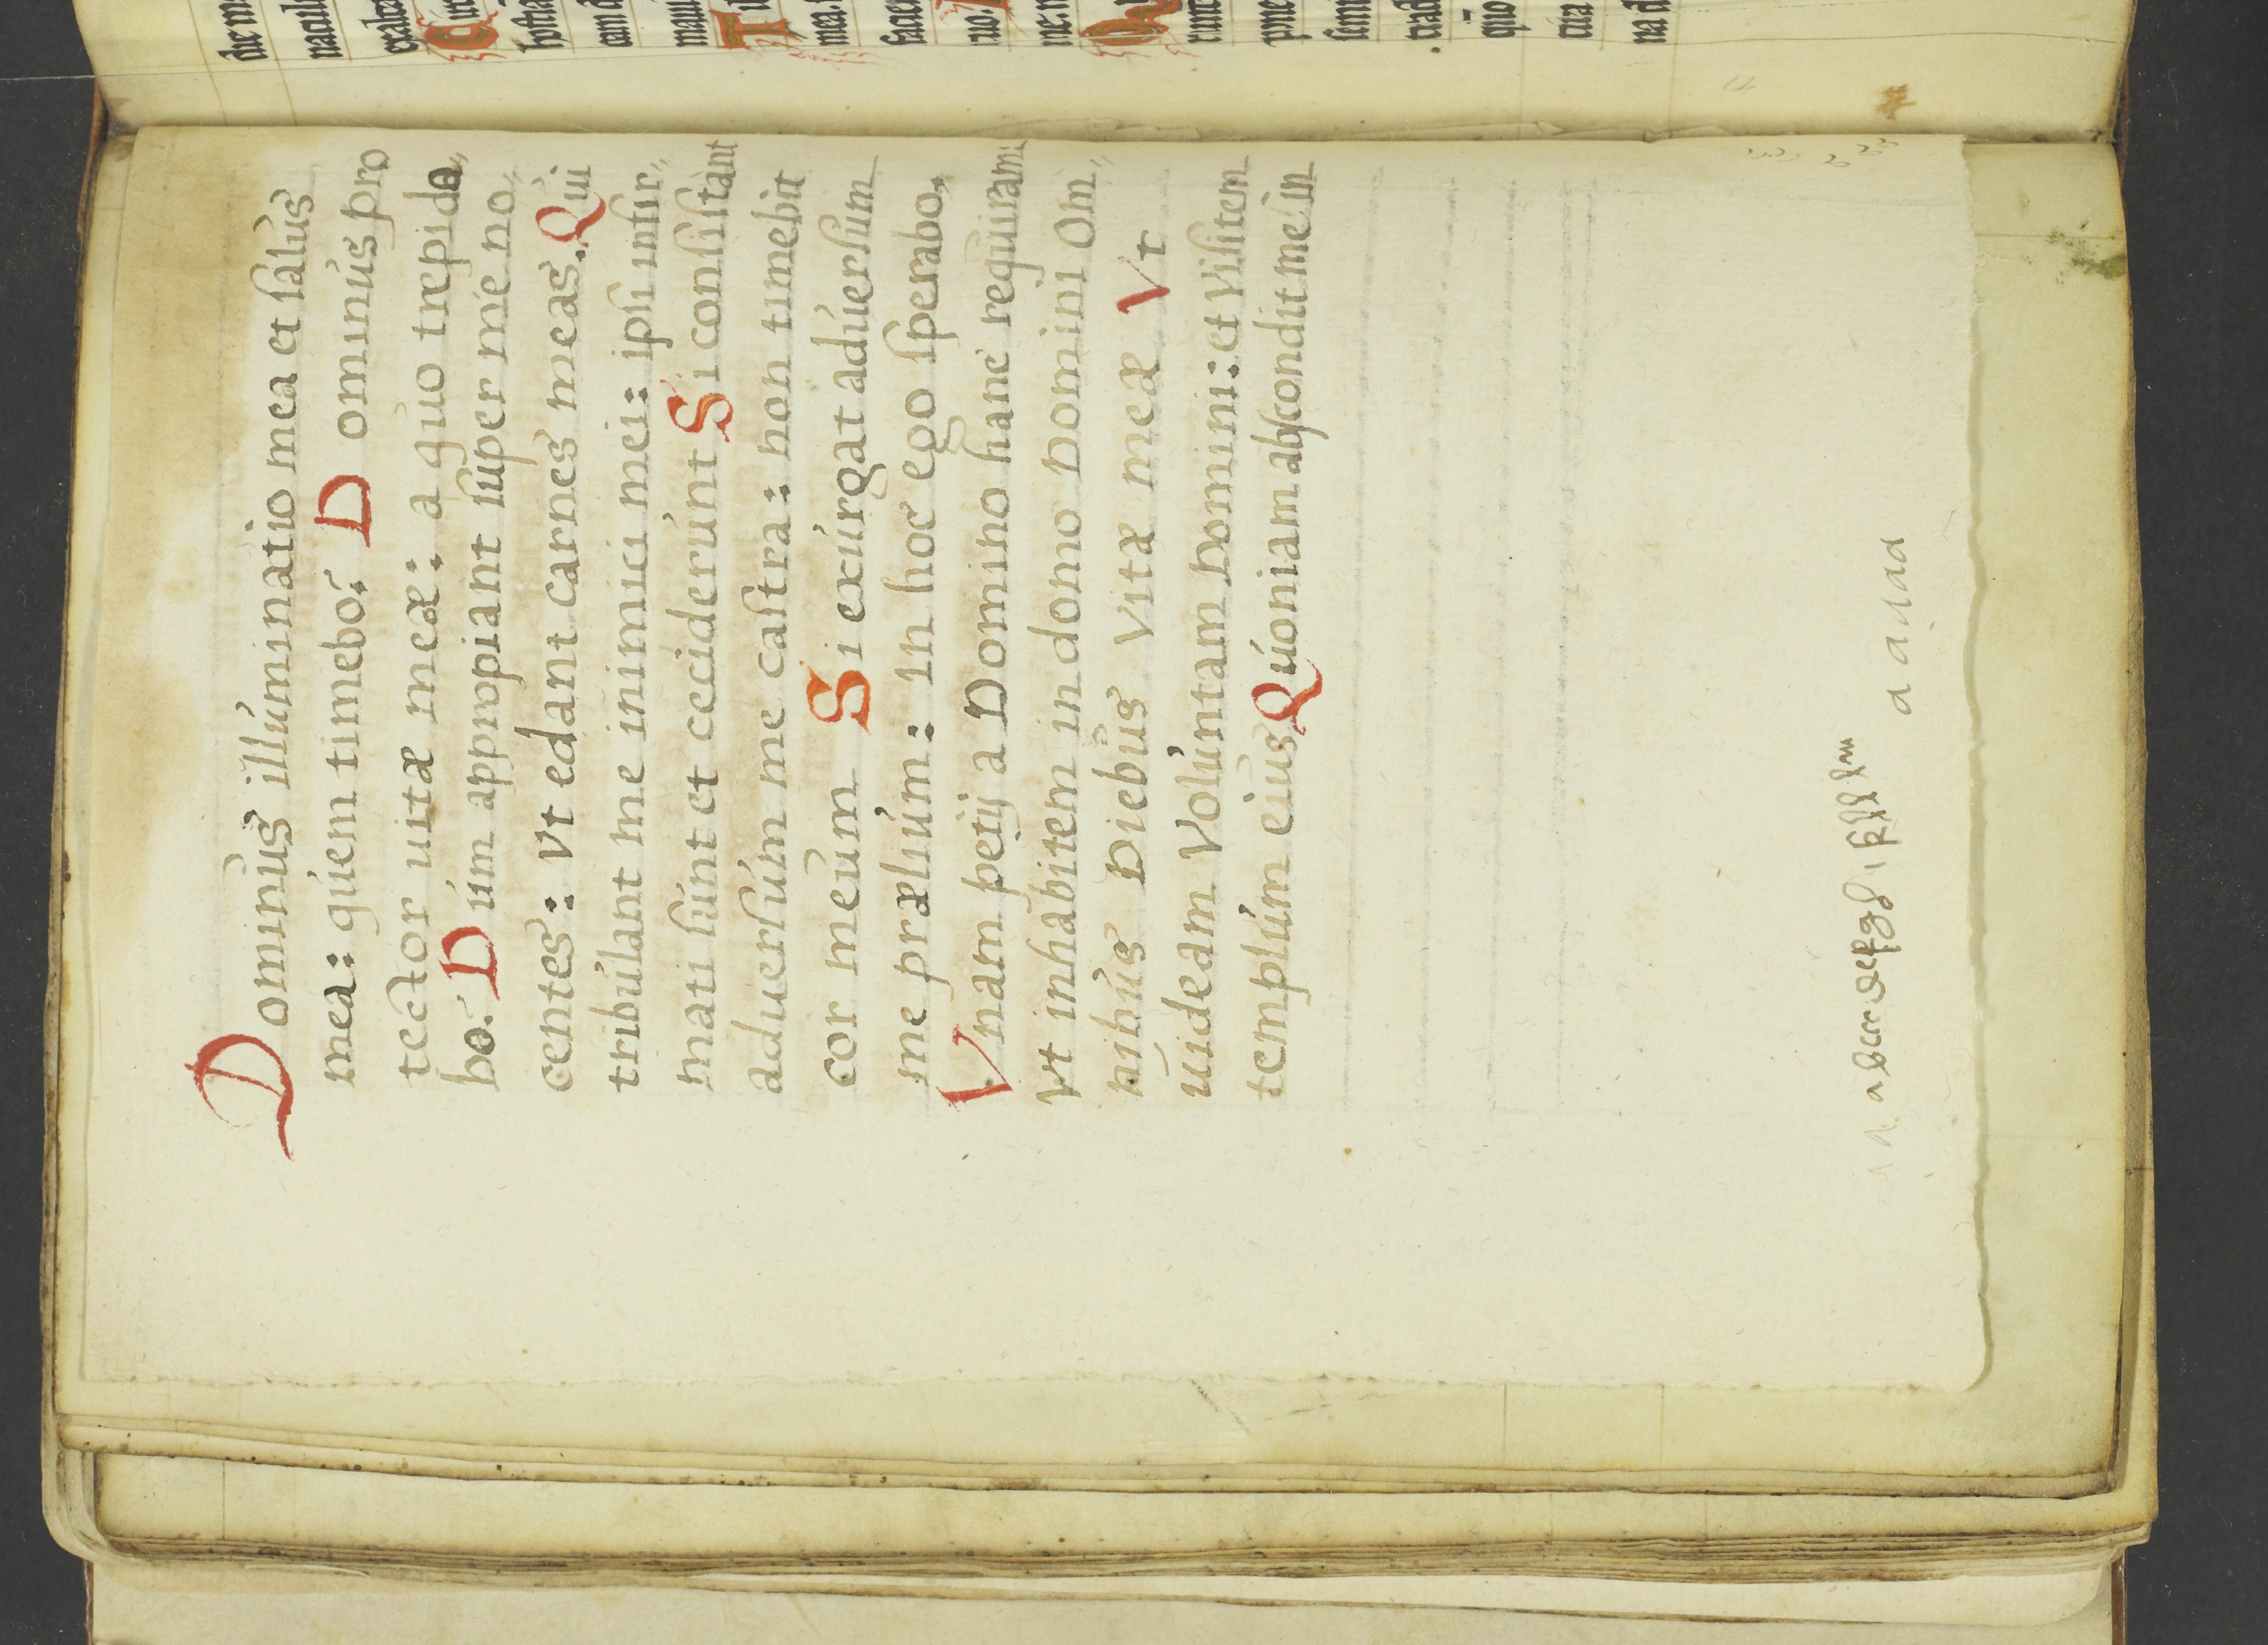 Dominus illúminatio mea et ſalus
mea: quem timebo? Dominús pro
tector uitæ meæ: a quo trepida,,
bo. Dúm appropiant ſúper me no,,
centes: Vt edant carnes meas. Qui
tribúlant me inimici mei: ipſi infir,,
mati ſúnt et cecidérúnt Si conſiſtant
aduerſúm me caſtra: non timebit
cor meúm Si exúrgat adúerſum
me præliúm: In hoc ego ſperabo,
Vnam petij a Domino hanc requiram
Vt inhabitem in domo Domini Om,,
nibús Diebús Vitæ meæ Vt
úideam Volúntam Domini: et Viſitem
templúm eiús Qúoniam abſcondit me in